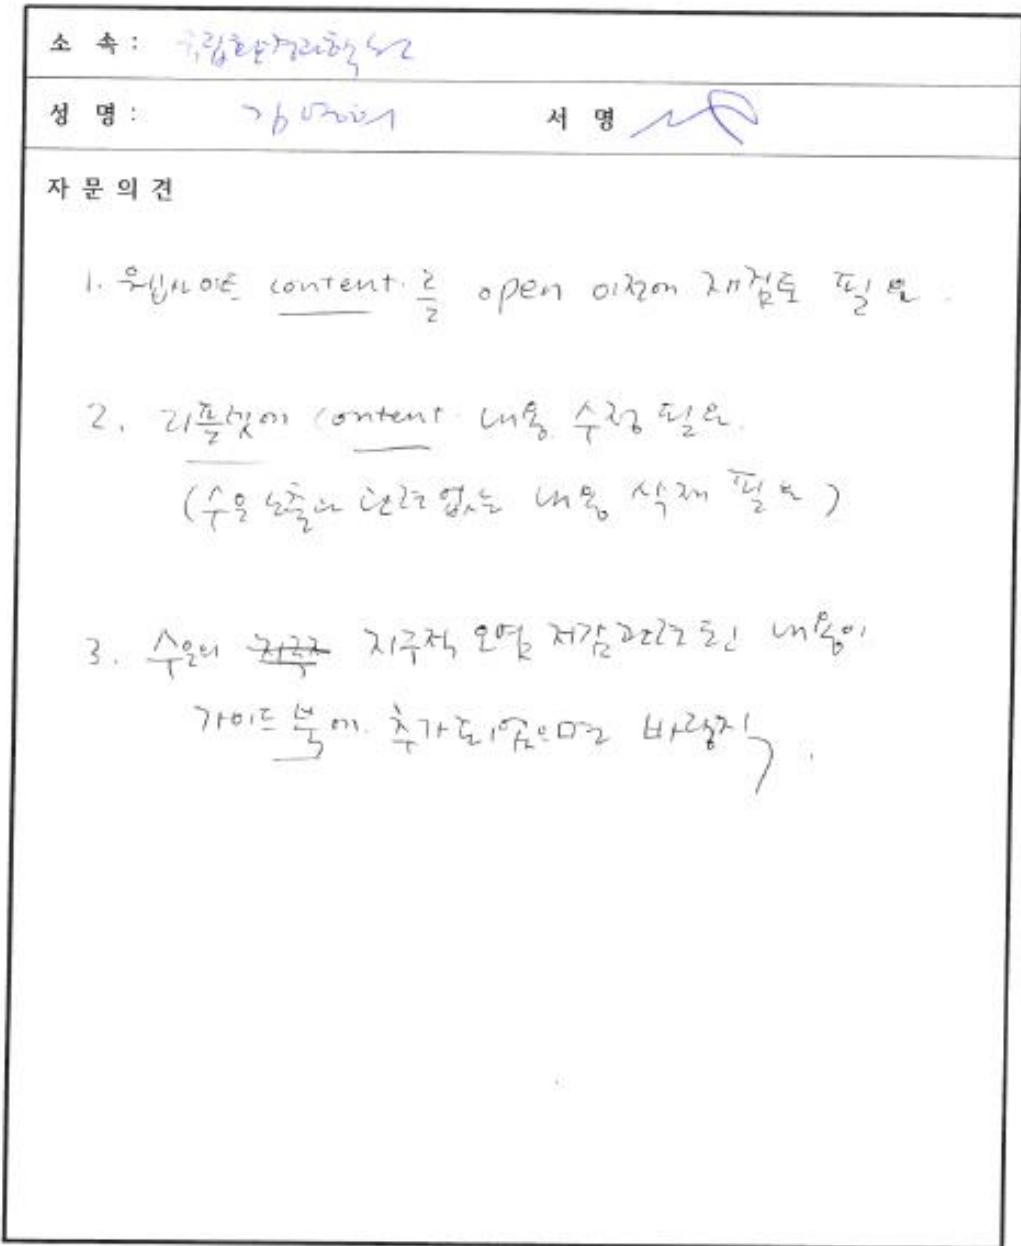 소 속 : 국립환경과학원
성 명 : 서 명
자 문 의 견
1. 웹사이트 content를 open 이전에 재검토 필요.
2. 리플렛에 content 내용 수정 필요.
(수은 노출과 관련 없는 내용 삭제 필요)
3. 수은의 지구적 오염 저감 관련된 내용이
가이드북에 추가되었으면 바람직.